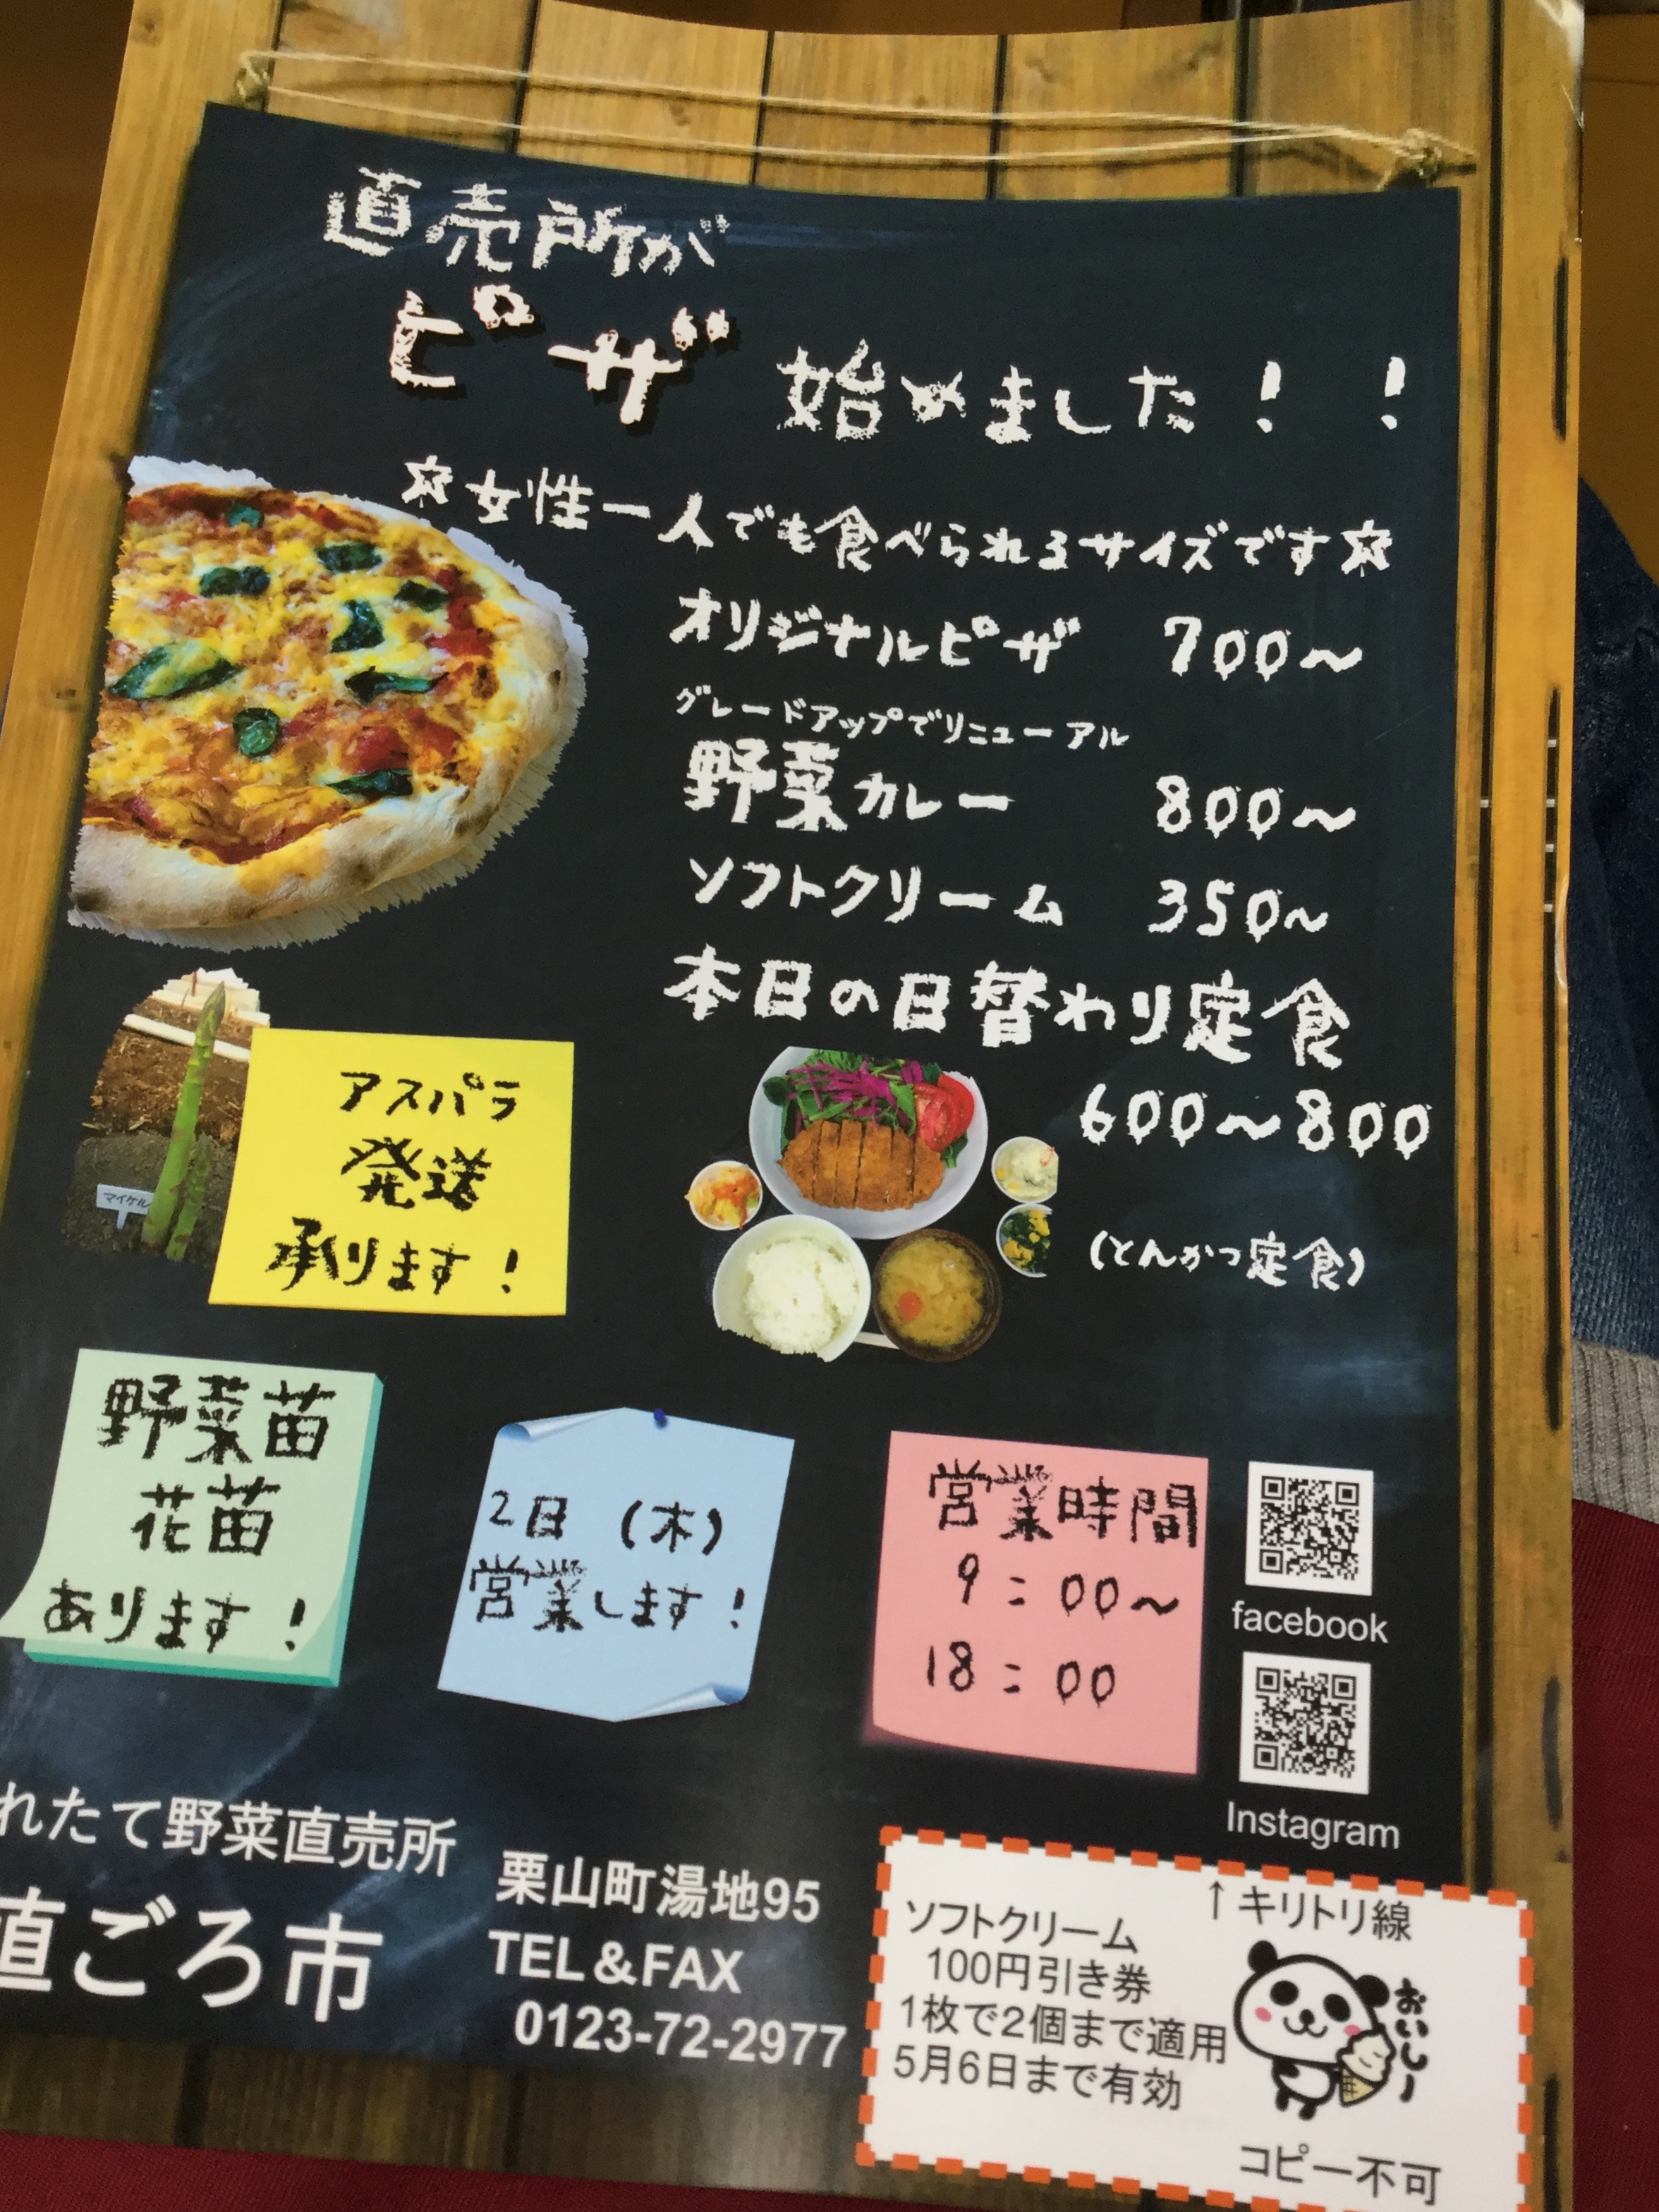 直売所が
ピザ 始めました！！
☆女性一人でも食べられるサイズです☆
オリジナルピザ 700～
グレードアップでリニューアル
野菜カレー 800～
ソフトクリーム 350～
本日の日替わり定食
600～800
(とんかつ定食)
マイケル
アスパラ
発送
承ります！
野菜苗
花苗
あります！
2日 (木)
営業します！
営業時間
9：00～
18：00
facebook
Instagram
れたて野菜直売所
直ごろ市
栗山町湯地95
TEL＆FAX
0123-72-2977
↑キリトリ線
ソフトクリーム
100円引き券
1枚で2個まで適用
5月6日まで有効
おいしー
コピー不可